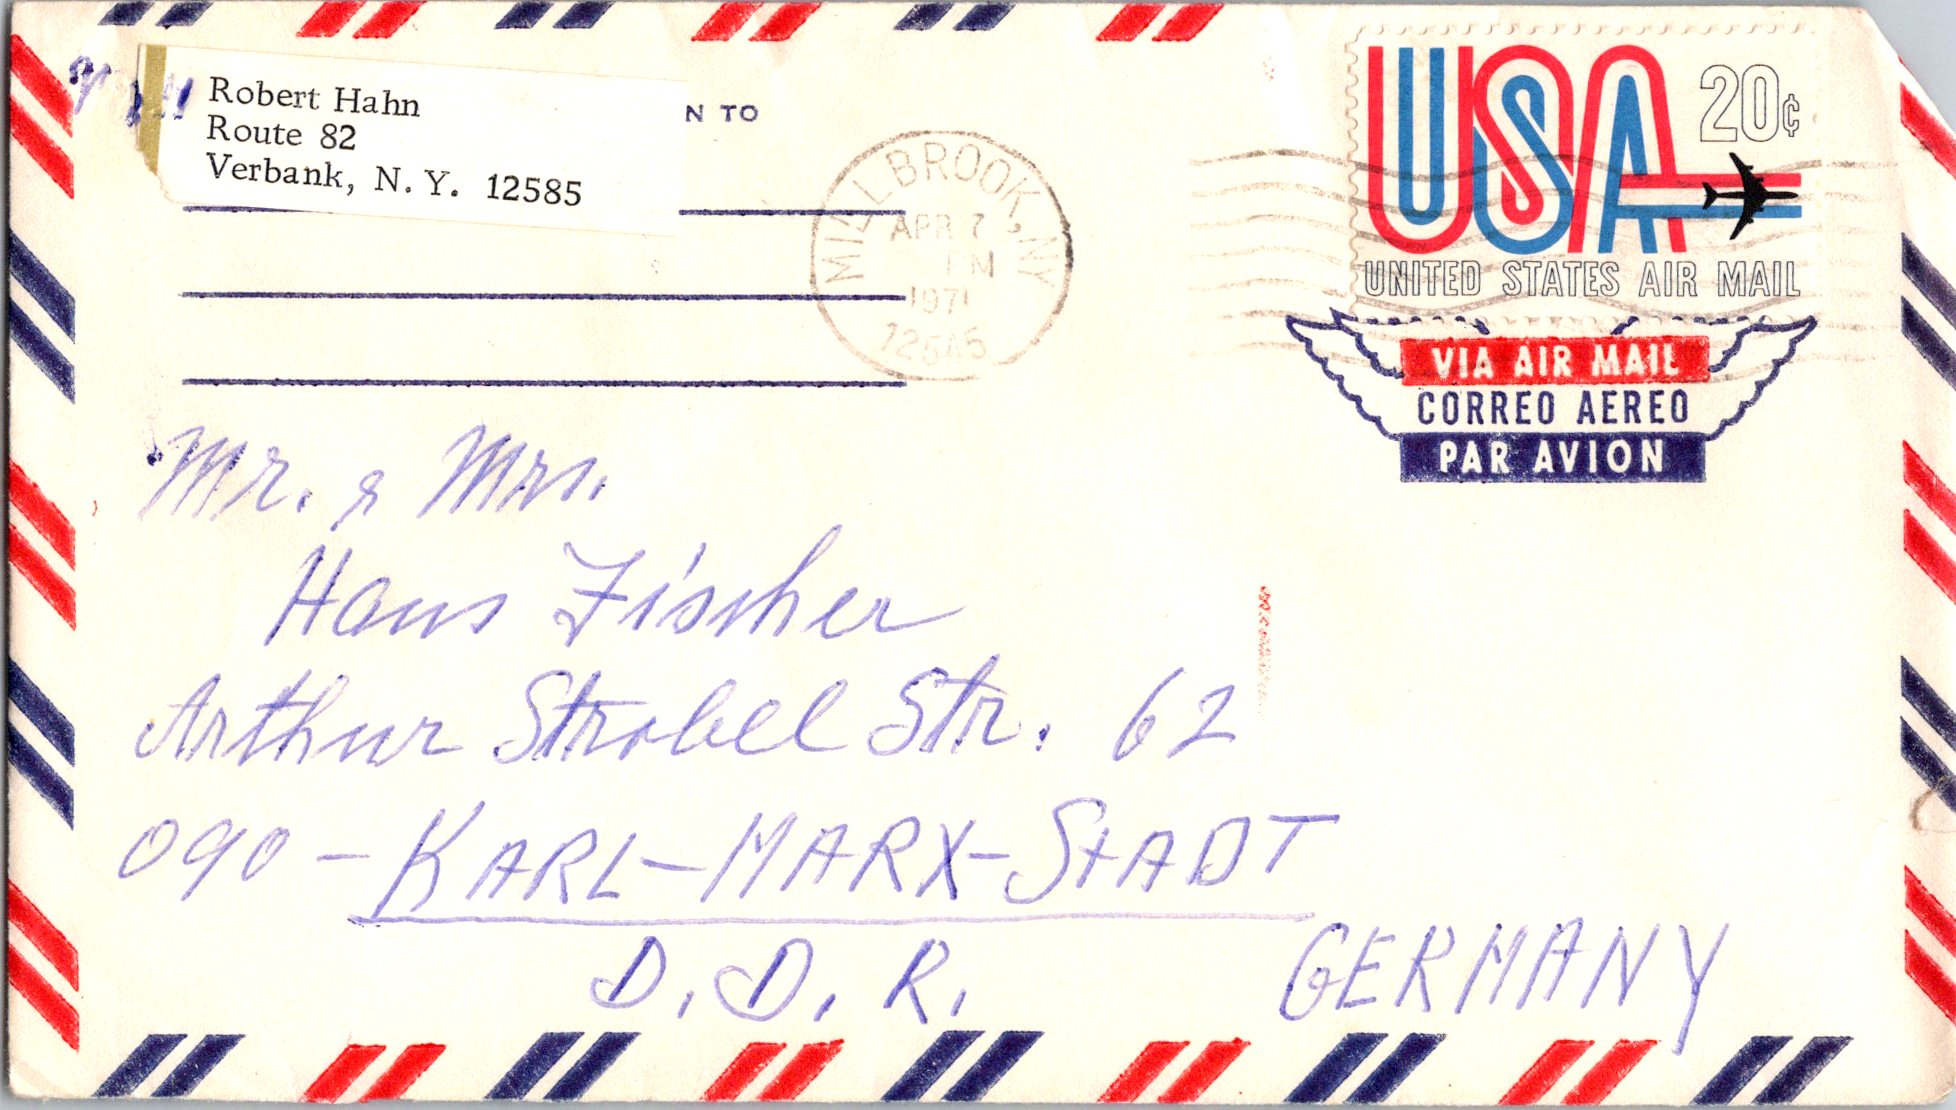 Robert Hahn
Route 82
Verbank, N. Y. 12585
N TO
MILLBROOK, NY
APR 7
1971
12545
USA 20¢
UNITED STATES AIR MAIL
VIA AIR MAIL
CORREO AEREO
PAR AVION
Mr. & Mrs.
Hans Fischer
Arthur Strobel Str. 62
090 - KARL-MARX-STADT
D. D. R. GERMANY